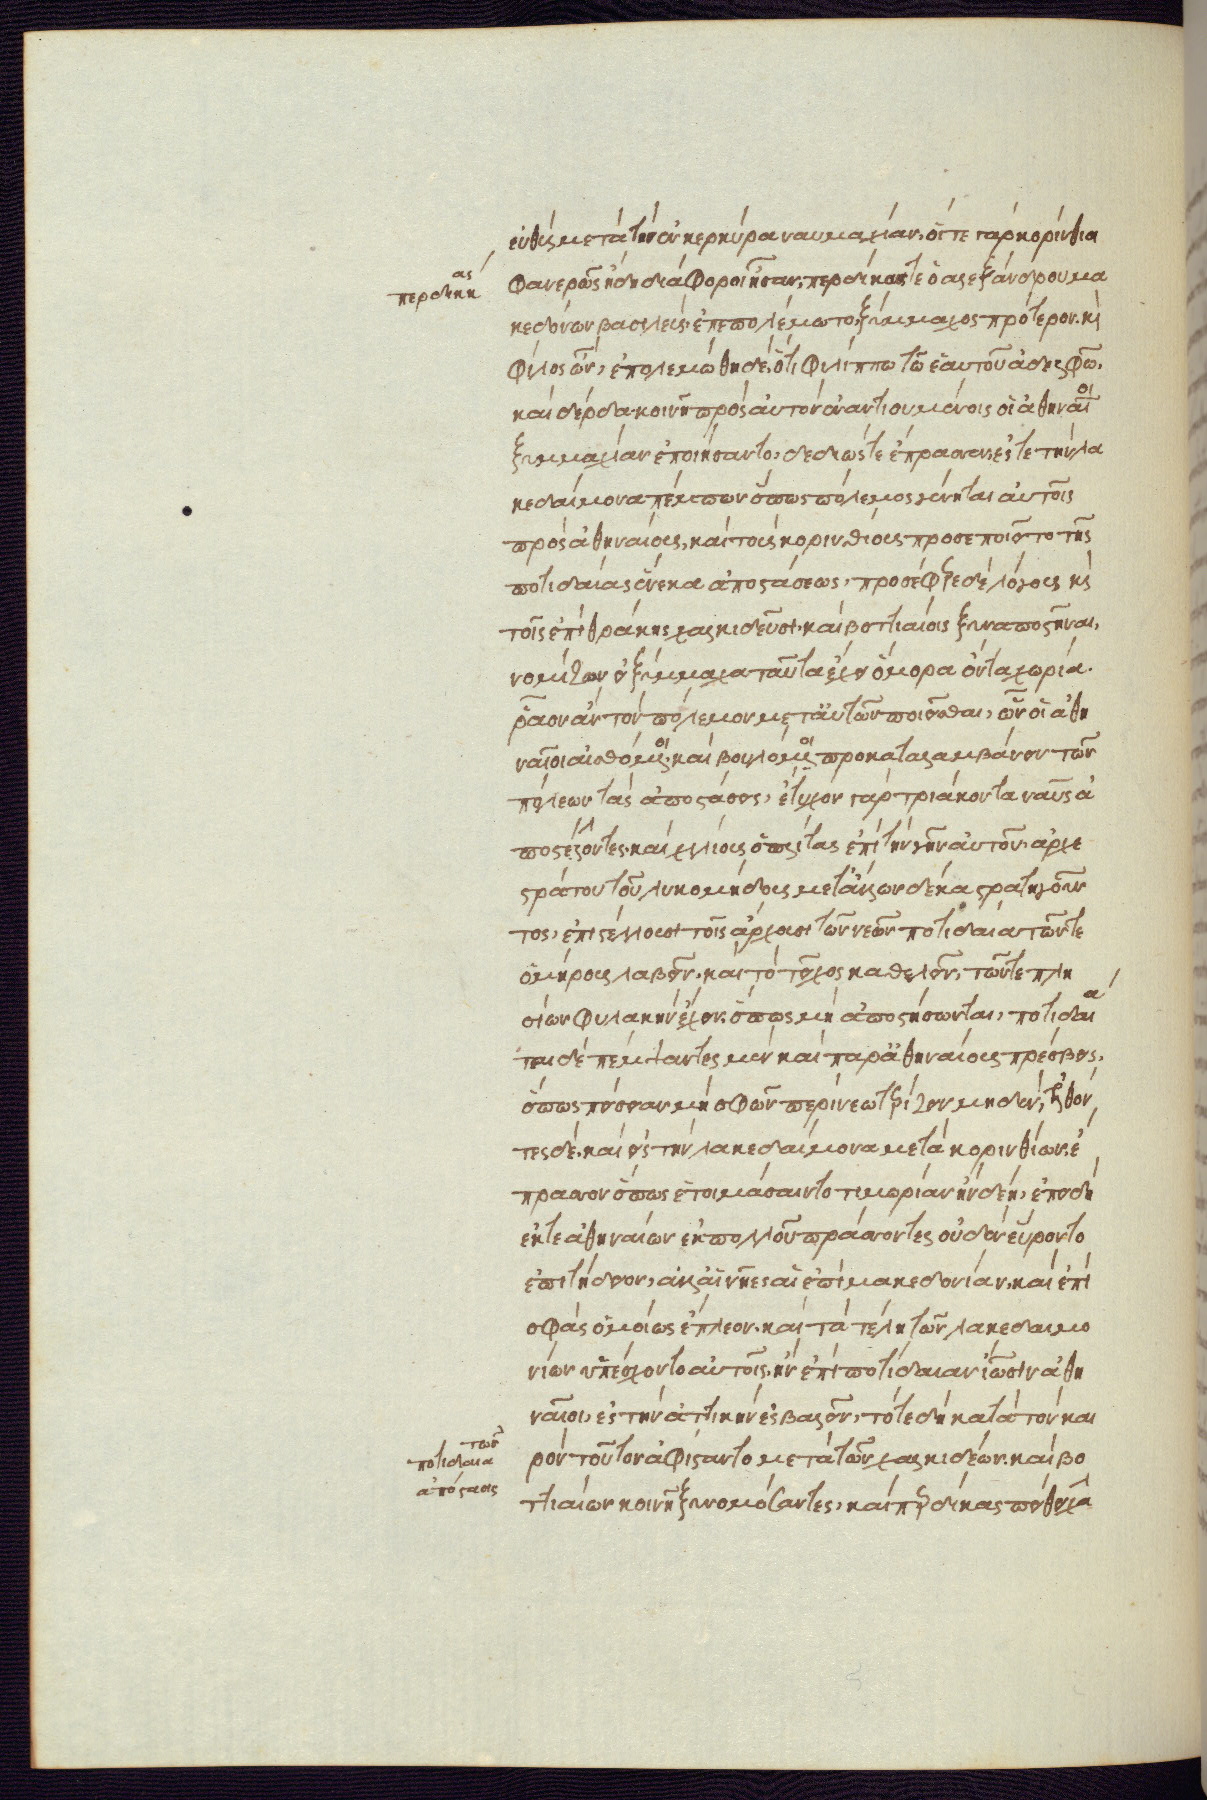 εὐθὺς μετὰ τὴν ἐν κερκύρα ναυμαχίαν. οἵ τε γὰρ κορίνθιοι
περδίκκας
φανερῶς ἤδη διάφοροι ἦσαν. περδίκκας τε ὁ ἀλεξάνδρου μα
κεδόνων βασιλεὺς. ἐπεπολέμωτο. ξύμμαχος πρότερον. κὶ
φίλος ὤν, ἐπολεμώθη δὲ. ὅτι φιλίππω τῶ ἑαυτοῦ ἀδελφῶ.
καὶ δέρδα. κοινῆ πρὸς αὐτὸν ἐναντιουμένοις οἱ ἀθηναῖοι
ξυμμαχίαν ἐποιήσαντο, δεδιώς τε ἔπρασσεν. ἔς τε τὴν λα
κεδαίμονα πέμπων ὅπως πόλεμος γένηται αὐτοῖς
πρὸς ἀθηναίους, καὶ τοὺς κορινθίους προσεποιεῖτο τῆς
ποτιδαίας ἕνεκα ἀποστάσεως, προσέφερε δὲ λόγους κὶ
τοῖς ἐπὶ θράκης χαλκιδεῦσι. καὶ βοττιαίοις ξυναποστῆναι,
νομίζων εἰ ξύμμαχα ταῦτα ἔχοι ὅμορα ὄντα χωρία.
ῥᾶον ἂν τὸν πόλεμον μετ᾽ αὐτῶν ποιεῖσθαι, ὧν οἱ ἀθη
ναῖοι αἰσθόμενοι. καὶ βουλόμενοι προκαταλαμβάνειν τῶν
πόλεων τὰς ἀποστάσεις, ἔτυχον γὰρ τριάκοντα ναῦς ἀ
ποστέλλοντες. καὶ χιλίους ὁπλίτας ἐπὶ τὴν γῆν αὐτοῦ. ἀρχε
στράτου τοῦ λυκομήδους μετ᾽ ἄλλων δέκα στρατηγοῦν
τος, ἐπιστέλλουσι τοῖς ἄρχουσι τῶν νεῶν ποτιδαιατῶν τε
ὁμήρους λαβεῖν. καὶ τὸ τεῖχος καθελεῖν, τῶν τε πλη
σίων φυλακὴν ἔχειν. ὅπως μὴ ἀποστήσωνται, ποτιδαιᾶ
ται δὲ πέμψαντες μὲν καὶ παρ᾽ ἀθηναίους πρέσβεις,
ὅπως πείσειαν μὴ σφῶν πέρι νεωτερίζειν μηδέν, ἐλθόν
τες δὲ. καὶ εἰς τὴν λακεδαίμονα μετὰ κορινθίων. ἔ
πρασσον ὅπως ἑτοιμάσαιντο τιμωρίαν ἢν δέη, ἐπειδὴ
ἔκ τε ἀθηναίων ἐκ πολλοῦ πράσσοντες οὐδὲν εὕροντο
ἐπιτήδειον, ἀλλ᾽ αἱ νῆες αἱ ἐπὶ μακεδονίαν. καὶ ἐπὶ
σφᾶς ὁμοίως ἔπλεον. καὶ τὰ τέλη τῶν λακεδαιμο
νίων ὑπέσχοντο αὐτοῖς. ἢν ἐπὶ ποτίδαιαν ἴωσιν ἀθη
ναῖοι, ἐς τὴν ἀττικὴν ἐσβαλεῖν, τότε δὴ κατὰ τὸν και
ποτιδαιατῶν
ἀπόστασις
ρὸν τοῦτον ἀφίσταντο μετὰ τῶν χαλκιδέων. καὶ βο
ττιαίων κοινῆ ξυνομόσαντες, καὶ περδίκκας πείθει χαλ